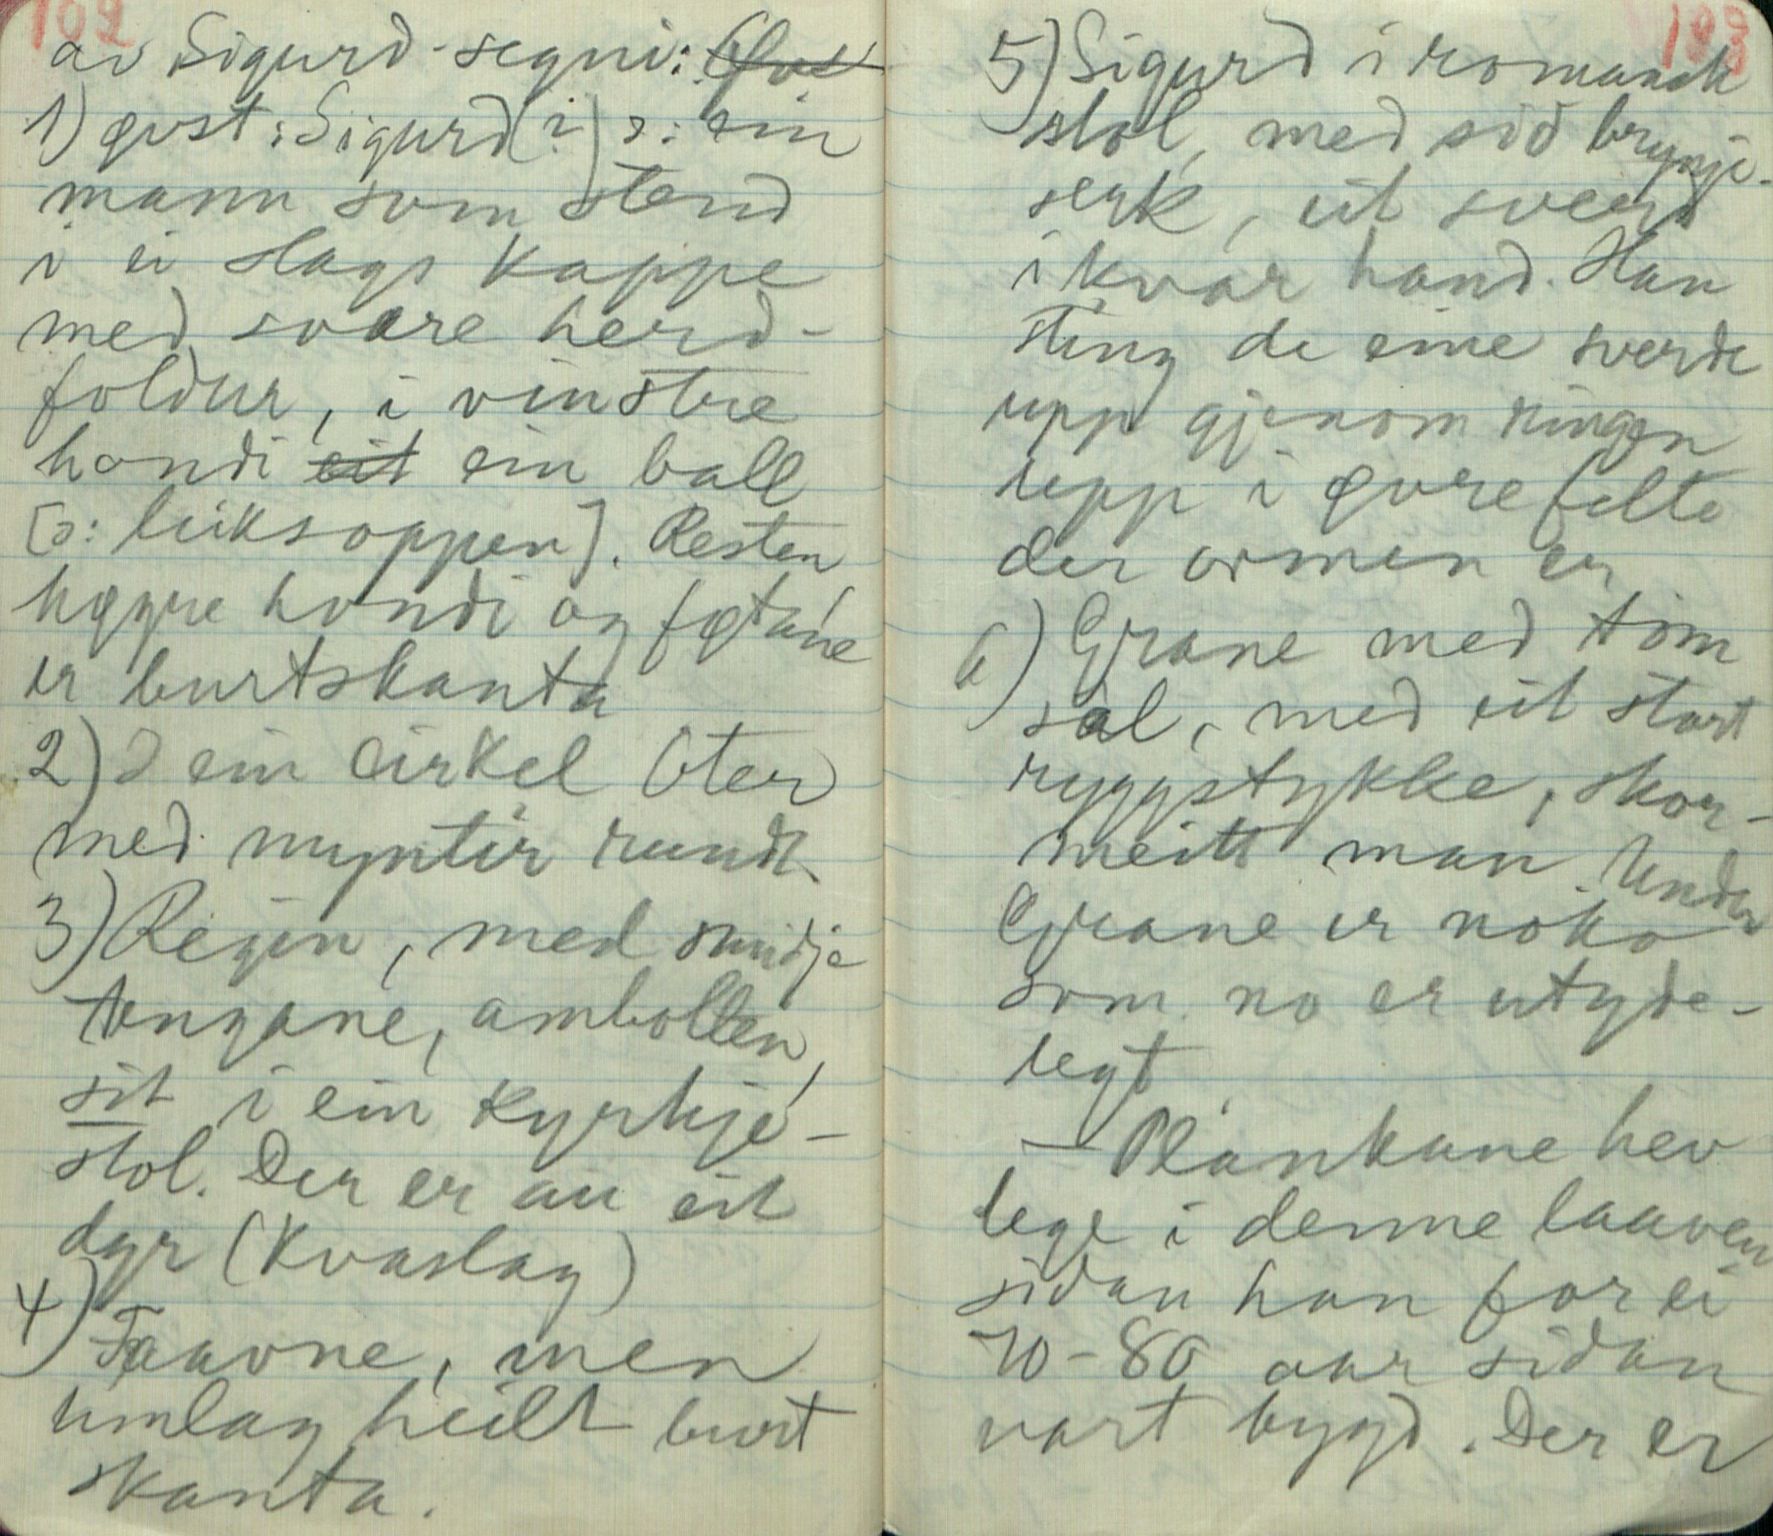 102
av Sigurd-segni: Øvst
1) øvst: Sigurd (?) ɔ: ein
mann som stend
i ei slags kappe
med svære herd-
foldur, i vinstre
hondi eit ein ball
[ɔ: leiksoppen]. Resten
høgre hondi og føtane
er burtskanta
2) I ein cirkel Oter
med myntir rundt
3) Regin, med smidje
tengane, ambolten,
sit i ein kyrkje-
stol. Der er au eit
dyr (Kvaslag)
4) Faavne, men
umlag heilt burt
skanta.
103
5) Sigurd i romansk
stol, med sid brynje-
serk, eit sverd
i kvar hand. Han
sting de eine sverde
upp gjenom ringen
upp i øvre felte
der ormen er
6) Grane med tom
sal, med eit stort
ryggstykke, skor-
meitt man. Under
Grane er noko
som no er utyde-
legt
— Plankane hev
lege i denne laaven
sidan han for ei
70-80 aar sidan
vart bygd. Der er